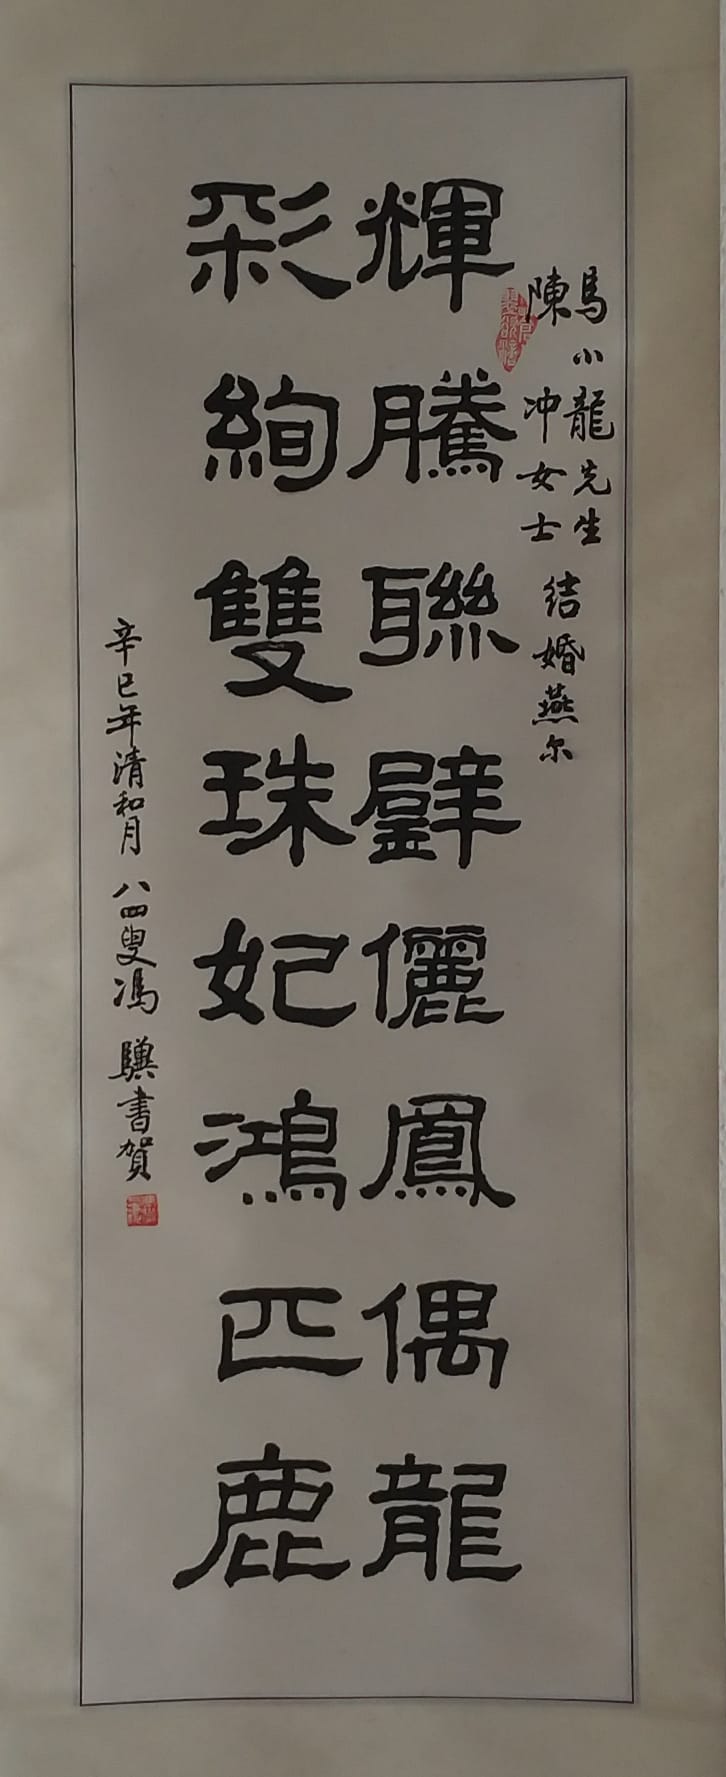 馬小龍先生
陳冲女士
结婚燕尔
輝騰聯璧儷鳳偶龍
彩絢雙珠妃鴻匹鹿
辛巳年清和月八四叟馮騏書賀